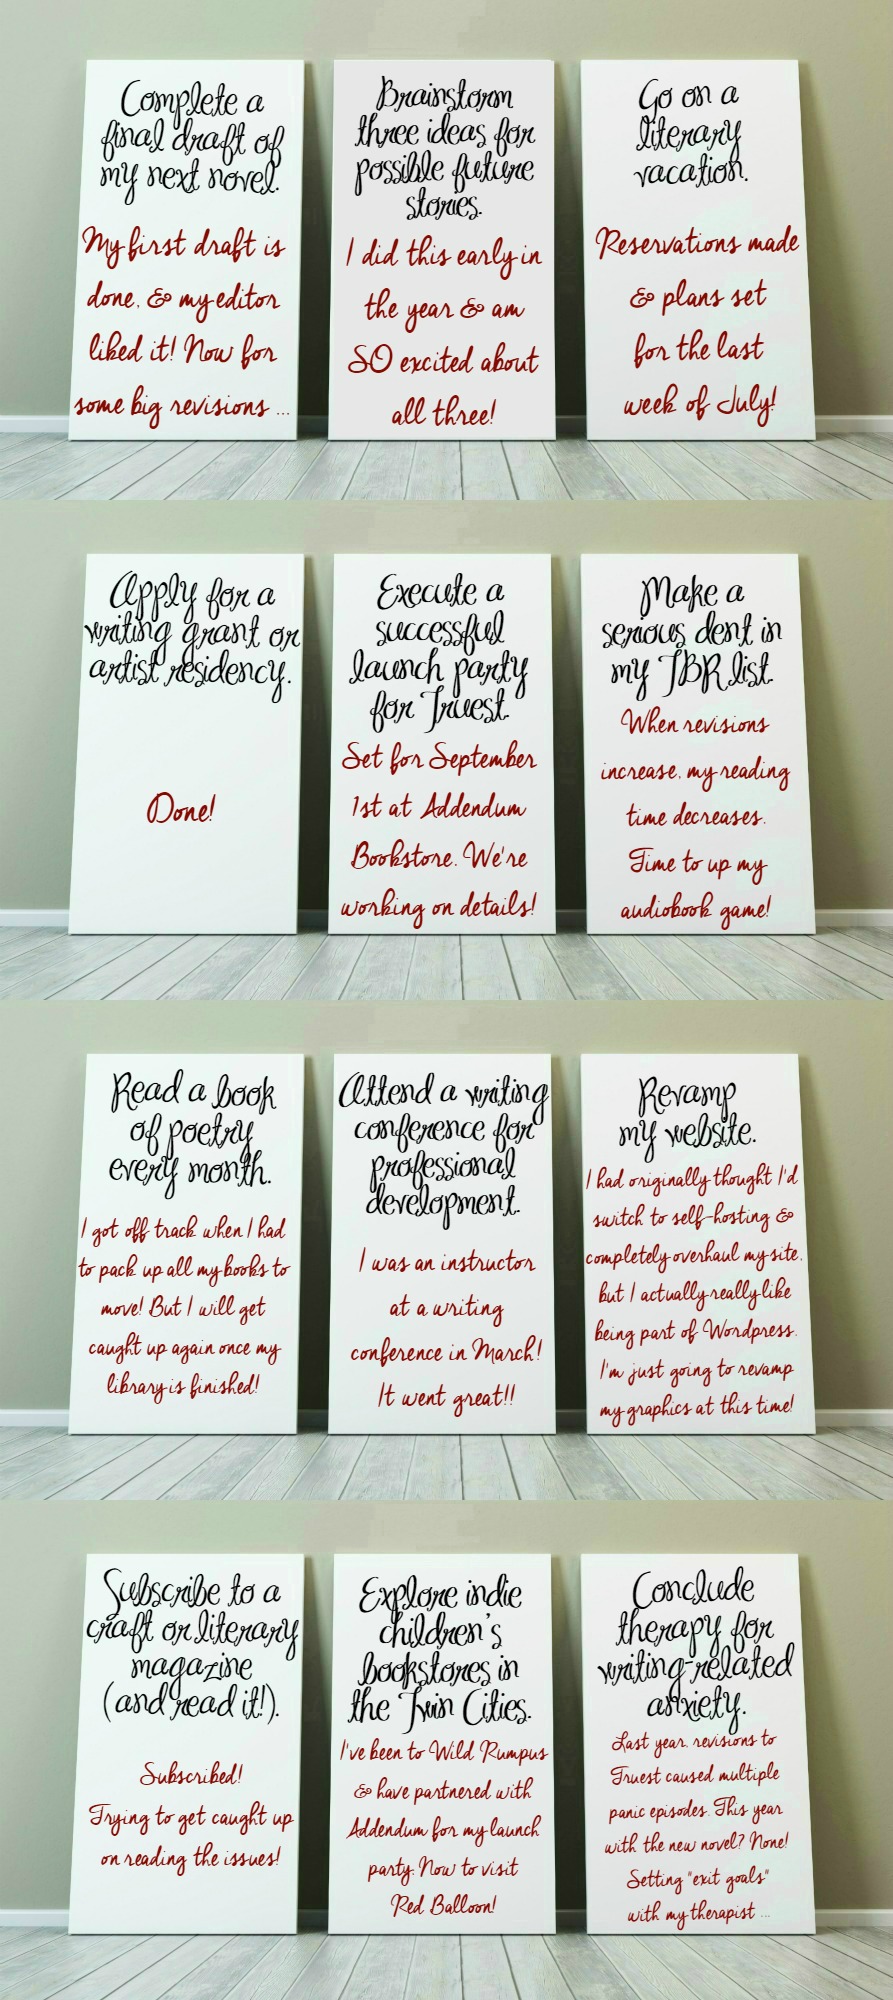 Complete a
final draft of
my next novel.
My first draft is
done, & my editor
liked it! Now for
some big revisions ...
Brainstorm
three ideas for
possible future
stories.
I did this early in
the year & am
SO excited about
all three!
Go on a
literary
vacation.
Reservations made
& plans set
for the last
week of July!
Apply for a
writing grant or
artist residency.
Done!
Execute a
successful
launch party
for Truest.
Set for September
1st at Addendum
Bookstore. We're
working on details!
Make a
serious dent in
my TBR list.
When revisions
increase, my reading
time decreases.
Time to up my
audiobook game!
Read a book
of poetry
every month.
I got off track when I had
to pack up all my books to
move! But I will get
caught up again once my
library is finished!
Attend a writing
conference for
professional
development.
I was an instructor
at a writing
conference in March!
It went great!!
Revamp
my website.
I had originally thought I'd
switch to self-hosting &
completely overhaul my site,
but I actually really like
being part of Wordpress.
I'm just going to revamp
my graphics at this time!
Subscribe to a
craft or literary
magazine
(and read it!).
Subscribed!
Trying to get caught up
on reading the issues!
Explore indie
children's
bookstores in
the Twin Cities.
I've been to Wild Rumpus
& have partnered with
Addendum for my launch
party. Now to visit
Red Balloon!
Conclude
therapy for
writing-related
anxiety.
Last year, revisions to
Truest caused multiple
panic episodes. This year
with the new novel? None!
Setting "exit goals"
with my therapist ...